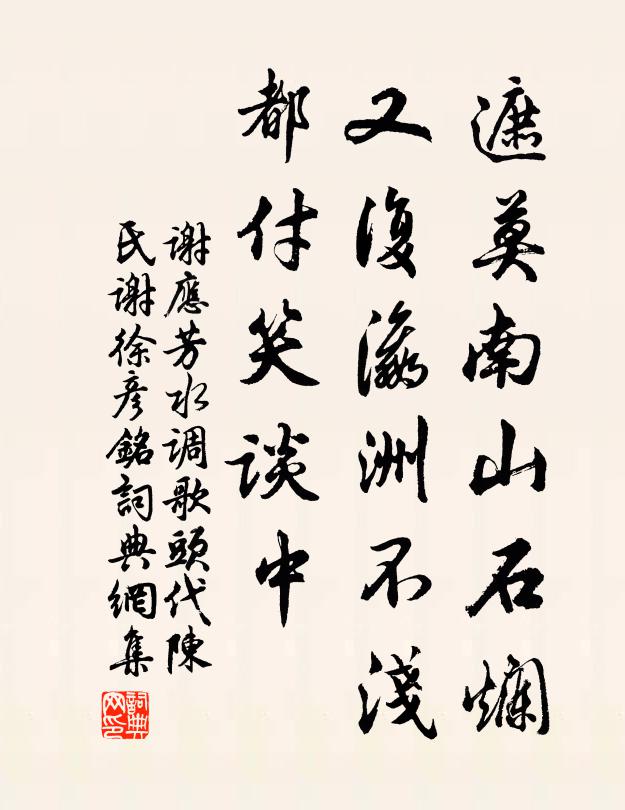 遮莫南山石爛
又復瀛洲不淺
都付笑談中
謝應芳水調歌頭代陳
氏謝徐彥銘詞典網集
詞典
网印